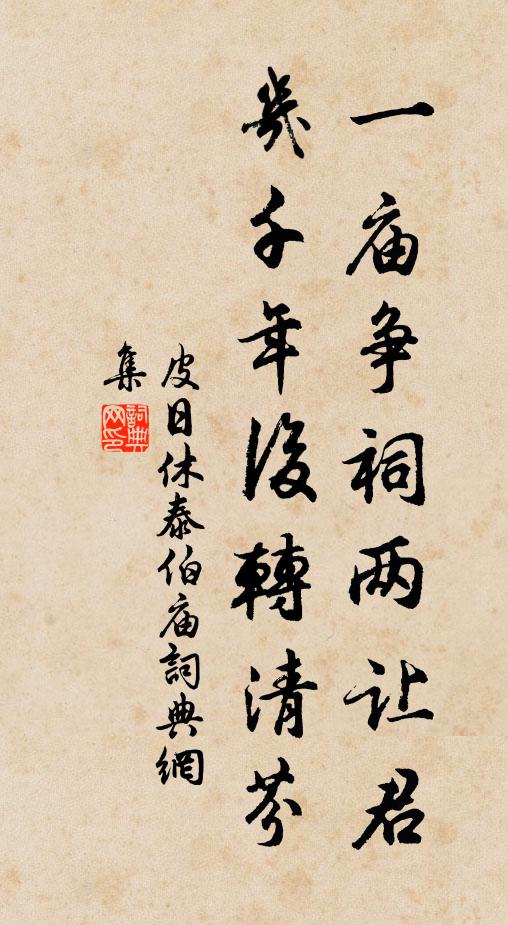 一庙争祠两让君
几千年後轉清芬
皮日休泰伯庙詞典網
集
詞典网印